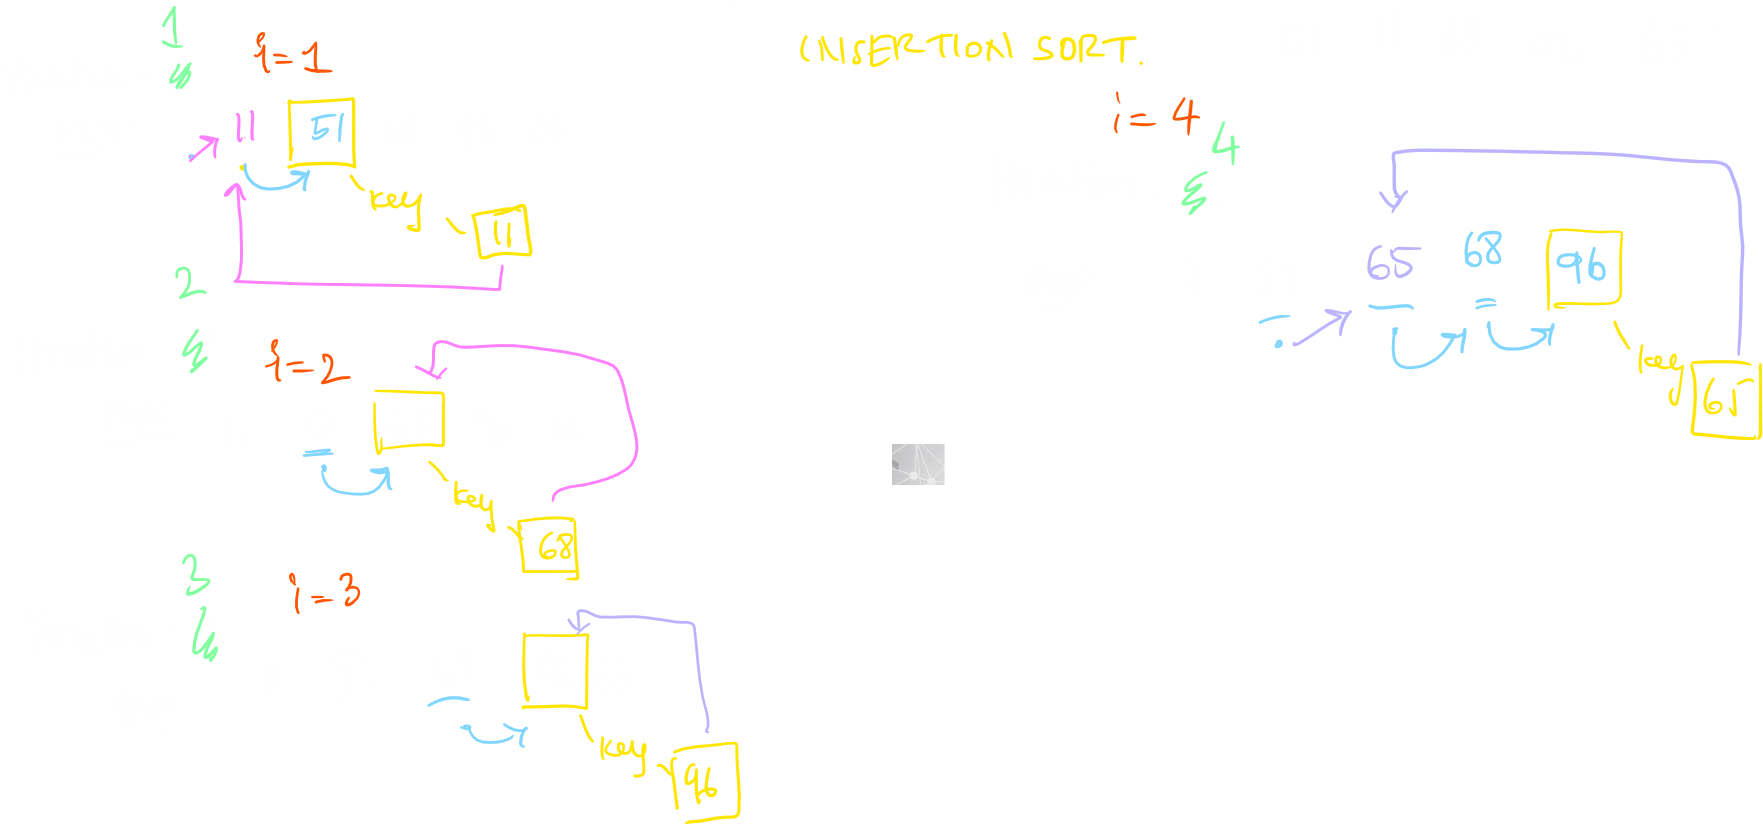 INSERTION SORT.
1
i=1
11 51
key
11
2
i=2
key
68
3
i=3
key
96
i=4
4
65 68 96
key
65